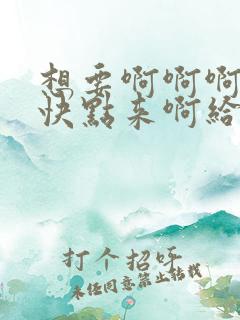 想要啊啊啊
快點来啊給
打个招呼
未经同意禁止转载